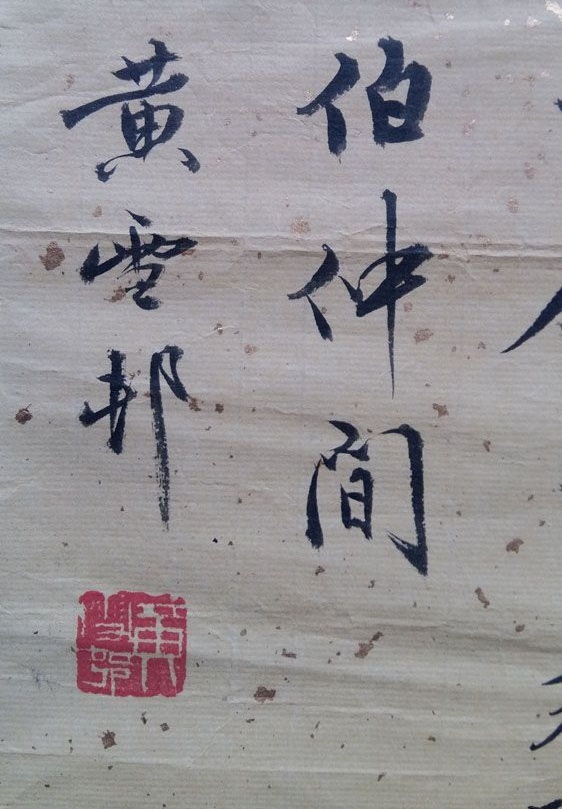 伯仲間
黄雲邨